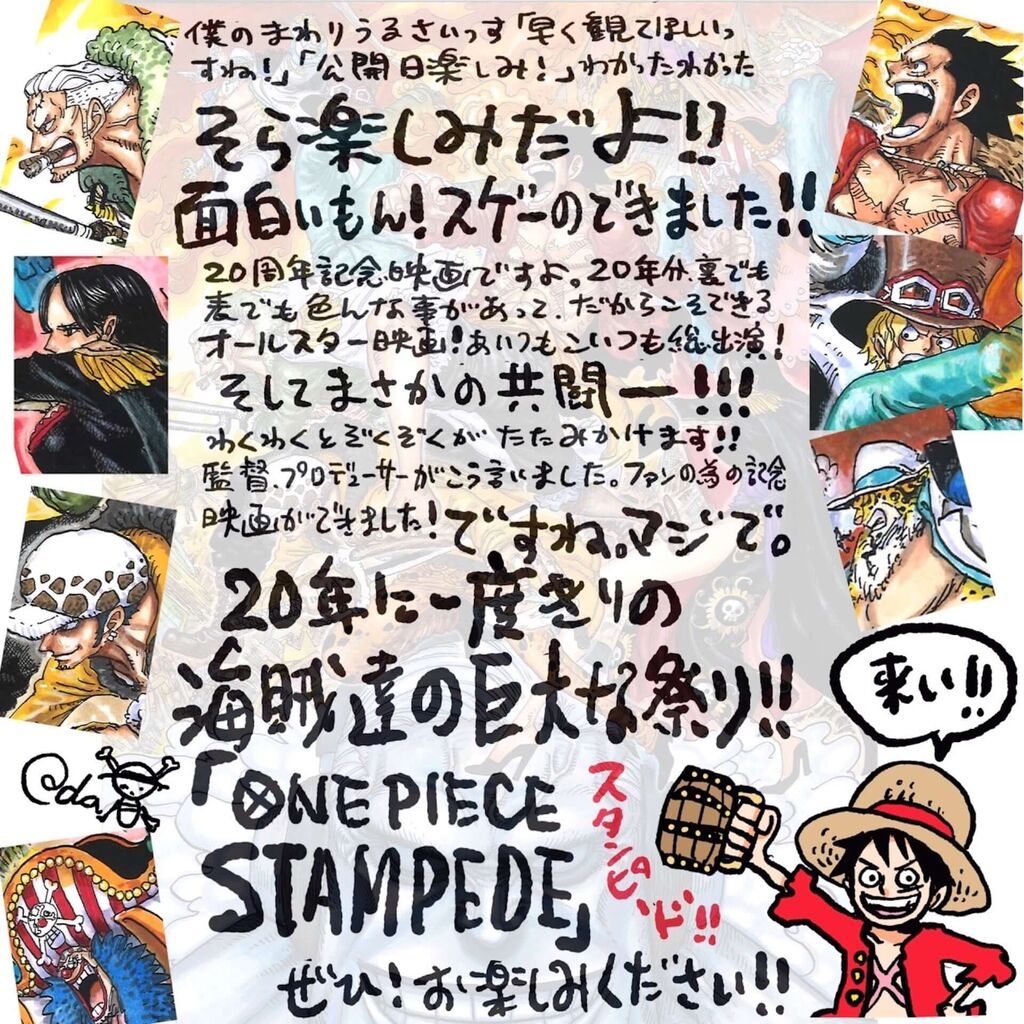 僕のまわりうるさいっす「早く観てほしいっ
すね!」「公開日楽しみ!」わかったわかった
そら楽しみだよ!!
面白いもん!スゲーのできました!!
20周年記念映画ですよ。20年分、裏でも
表でも色んな事があって、だからこそできる
オールスター映画!あいつもこいつも総出演!
そしてまさかの共闘ー!!!
わくわくとぞくぞくがたたみかけます!!
監督、プロデューサーがこう言いました。ファンの為の記念
映画ができました!ですね。マジで。
20年に一度きりの
海賊達の巨大な祭り!!
「ONE PIECE
STAMPEDE」
スタンピード!!
ぜひ!お楽しみください!!
来い!!
Oda